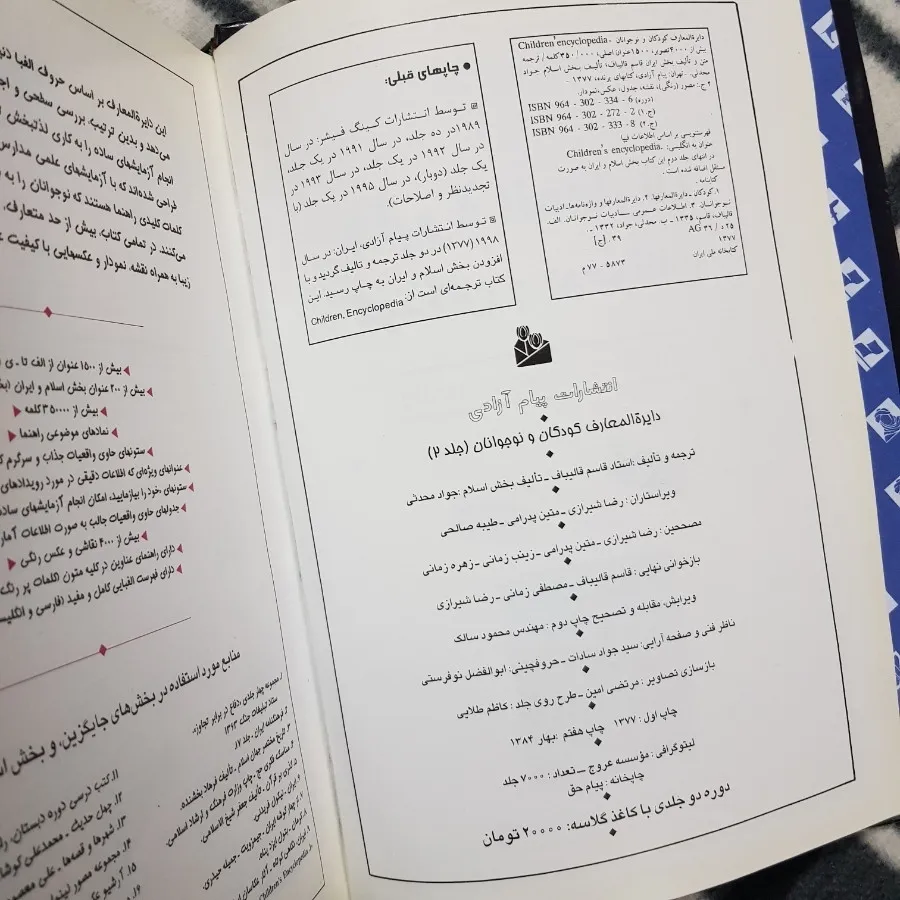 دایرةالمعارف کودکان و نوجوانان .Children'encyclopedia
بیش از ۴۰۰۰ تصویر، ۱۵۰۰ عنوان اصلی، ۳۵۰/۰۰۰ کلمه / ترجمه
متن و تألیف بخش ایران قاسم قالیباف؛ تألیف بخش اسلام جواد
محدثی. ـ تهران: پیام آزادی، کتابهای پرنده، ۱۳۷۷.
۲ ج.: مصور (رنگی)، نقشه، جدول، عکس، نمودار.
ISBN 964 - 302 - 334 - 6 (دوره)
ISBN 964 - 302 - 272 - 2 (ج.۱)
ISBN 964 - 302 - 333 - 8 (ج.۲)
فهرستنویسی بر اساس اطلاعات فیپا
عنوان به انگلیسی: .Children's encyclopedia
در انتهای جلد دوم این کتاب بخش اسلام و ایران به صورت
مستقل اضافه شده است.
کتابنامه.
۱. کودکان ـ دایرةالمعارفها. ۲. دایرةالمعارفها و واژه‌نامه‌ها ـ ادبیات
نوجوانان. ۳. اطلاعات عمومی ـ ادبیات نوجوانان. الف.
قالیباف، قاسم، ۱۳۳۵ ـ ب. محدثی، جواد، ۱۳۳۲ ـ .
۲۵ د / ۳۶ AG ۰۳۹ [ج]
۱۳۷۷
کتابخانه ملی ایران ۵۸۷۳ ـ ۷۷ م
● چاپهای قبلی:
توسط انتشارات کینگ فیشر: در سال
۱۹۸۹ در ده جلد، در سال ۱۹۹۱ در یک جلد،
در سال ۱۹۹۲ در یک جلد، در سال ۱۹۹۳ در
یک جلد (دوبار)، در سال ۱۹۹۵ در یک جلد (با
تجدیدنظر و اصلاحات).
توسط انتشارات پیام آزادی، ایران: در سال
۱۹۹۸ (۱۳۷۷) در دو جلد ترجمه و تالیف گردید و با
افزودن بخش اسلام و ایران به چاپ رسید. این
کتاب ترجمه‌ای است از: Children, Encyclopedia
انتشارات پیام آزادی
دایرةالمعارف کودکان و نوجوانان (جلد ۲)
ترجمه و تألیف: استاد قاسم قالیباف ـ تألیف بخش اسلام: جواد محدثی
ویراستاران: رضا شیرازی ـ متین پدرامی ـ طیبه صالحی
مصححین: رضا شیرازی ـ متین پدرامی ـ زینب زمانی ـ زهره زمانی
بازخوانی نهایی: قاسم قالیباف ـ مصطفی زمانی ـ رضا شیرازی
ویرایش، مقابله و تصحیح چاپ دوم: مهندس محمود سالک
ناظر فنی و صفحه آرایی: سید جواد سادات ـ حروفچینی: ابوالفضل نوفرستی
بازسازی تصاویر: مرتضی امین ـ طرح روی جلد: کاظم طلایی
چاپ اول: ۱۳۷۷ چاپ هفتم: بهار ۱۳۸۴
لیتوگرافی: مؤسسه عروج ـ تعداد: ۷۰۰۰ جلد
چاپخانه: پیام حق
دوره دو جلدی با کاغذ گلاسه: ۲۰۰۰۰ تومان
این دایرةالمعارف بر اساس حروف الفبا
می‌دهد و بدین ترتیب، بررسی سطحی و
انجام آزمایشهای ساده را به کاری لذتبخش
طراحی شده‌اند که با آزمایشهای علمی مدارس
کلمات کلیدی راهنما هستند که نوجوانان را به
می‌کنند. در تمامی کتاب، بیش از حد متعارف،
زیبا به همراه نقشه، نمودار و عکسهایی با کیفیت
بیش از ۱۵۰۰ عنوان از الف تا ـ ی
بیش از ۲۰۰ عنوان بخش اسلام و ایران
بیش از ۳۵۰۰۰۰ کلمه
نمادهای موضوعی راهنما
ستونهای حاوی واقعیات جذاب و سرگرم
عنوانهای ویژه‌ای که اطلاعات دقیقی در مورد رویدادهای
ستونهای «خود را بیازمایید، امکان انجام آزمایشهای
جدولهای حاوی واقعیات جالب به صورت اطلاعات
بیش از ۴۰۰۰ نقاشی و عکس رنگی
دارای راهنمای عناوین در کلیه متون (کلمات پر رنگ
دارای فهرست الفبایی کامل و مفید (فارسی و
منابع مورد استفاده در بخش‌های جایگزین، و بخش
۱. مجموعه چهار جلدی، دفاع در برابر تجاوز،
ستاد تبلیغات جنگ، ۱۳۶۳
۲. فرهنگنامه ایران، جلد ۱۷
۳. تاریخ مختصر جهان اسلام ـ تألیف فرهاد بخشنده.
۱۱. کتب درسی دوره دبستان،
۱۲. چهل حدیث ـ محمدعلی
۱۳. شهرها و قصه‌ها ـ علی
۱۴. مجموعه مصور
۱۵. آرشیو
۱۶.
Children's Encyclopedia